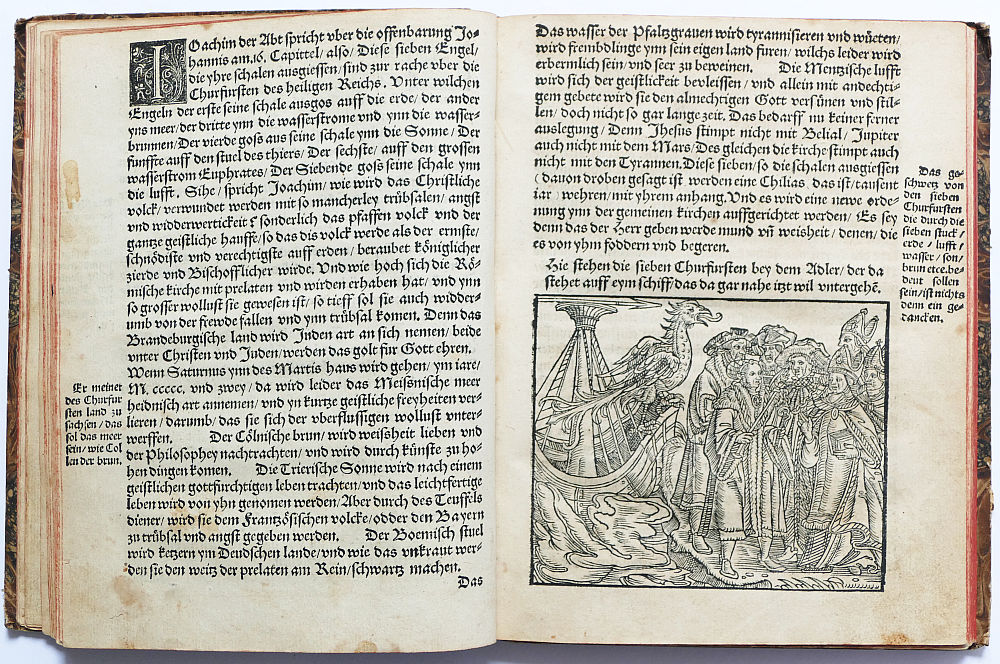 IOachim der Abt spricht vber die offenbarung Jo-
hannis am.16. Capittel/also/Diese sieben Engel/
die yhre schalen ausgiessen/sind zur rache vber die
Churfursten des heiligen Reichs. Vnter wilchen
Engeln der erste seine schale ausgos auff die erde/der ander
yns meer/der dritte ynn die wasserstrome vnd ynn die wasser-
brunnen/Der vierde goss aus seine schale ynn die Sonne/Der
funffte auff den stuel des thiers/Der sechste/auff den grossen
wasserstrom Euphrates/Der Siebende goss seine schale ynn
die lufft. Sihe/spricht Joachim/wie wird das Christliche
volck/verwundet werden mit so mancherley trübsalen/angst
vnd widderwertickeit? sonderlich das pfaffen volck vnd der
gantze geistliche hauffe/so das dis volck werde als der ernste/
schnödiste vnd verechtigste auff erden/beraubet Königlicher
zierde vnd Bischofflicher wirde. Vnd wie hoch sich die Rö-
mische kirche mit prelaten vnd wirden erhaben hat/vnd ynn
so grosser wollust sie gewesen ist/so tieff sol sie auch widder-
umb von der frewde fallen vnd ynn trübsal komen. Denn das
Brandeburgische land wird Jüden art an sich nemen/beide
vnter Christen vnd Jüden/werden das golt für Gott ehren.
Wenn Saturnus ynn des Martis haus wird gehen/ym iare/
M. ccccc. vnd zwey/da wird leider das Meissnische meer
heidnisch art annemen/vnd yn kurtze geistliche freyheiten ver-
lieren/darumb/das sie sich der vberflussigen wollust vnter-
werffen. Der Cölnische brun/wird weissheit lieben vnd
der Philosophey nachtrachten/vnd wird durch künste zu ho-
hen dingen komen. Die Trierische Sonne wird nach einem
geistlichen gottfurchtigen leben trachten/vnd das leichtfertige
wird von yhn genomen werden/Aber durch des Teuffels
diener/wird sie dem Frantzösischen volcke/odder den Bayern
zu trübsal vnd angst gegeben werden. Der Boemisch stuel
wird ketzern ym Deudschen lande/vnd wie das vnkraut wer-
den sie den weitz der prelaten am Rein/schwartz machen.
Das
Er meinet
des Churfur
sten land zu
sachsen/das
sol das meer
sein/wie Col
len der brun.
Das wasser der Pfaltzgrauen wird tyrannisieren vnd wüeten/
wird frembdlinge ynn sein eigen land furen/wilchs leider wird
erbermlich sein/vnd seer zu beweinen. Die Mentzische lufft
wird sich der geistlickeit bevleissen/vnd allein mit andechti-
gem gebete wird sie den almechtigen Gott versünen vnd stil-
len/doch nicht so gar lange zeit. Das bedarff nu keiner ferner
auslegung/Denn Jhesus stimpt nicht mit Belial/Jupiter
auch nicht mit dem Mars/Des gleichen die kirche stimpt auch
nicht mit den Tyrannen. Diese sieben/so die schalen ausgiessen
(dauon droben gesagt ist werden eine Chilias/das ist/tausent
iar) wehren/mit yhrem anhang. Vnd es wird eine newe orde-
nung ynn der gemeinen kirchen auffgerichtet werden/Es sey
denn das der Herr geben werde mund vñ weisheit/denen/die
es von yhm foddern vnd begeren.
Hie stehen die sieben Churfursten bey dem Adler/der da
stehet auff eyn schiff/das da gar nahe itzt wil vntergehẽ.
Das ge-
schwetz von
den sieben
Churfursten
die durch die
sieben stuck/
erde/lufft/
wasser/son/
brun etce.be-
deut sollen
sein/ist nichts
denn ein ge-
dancken.